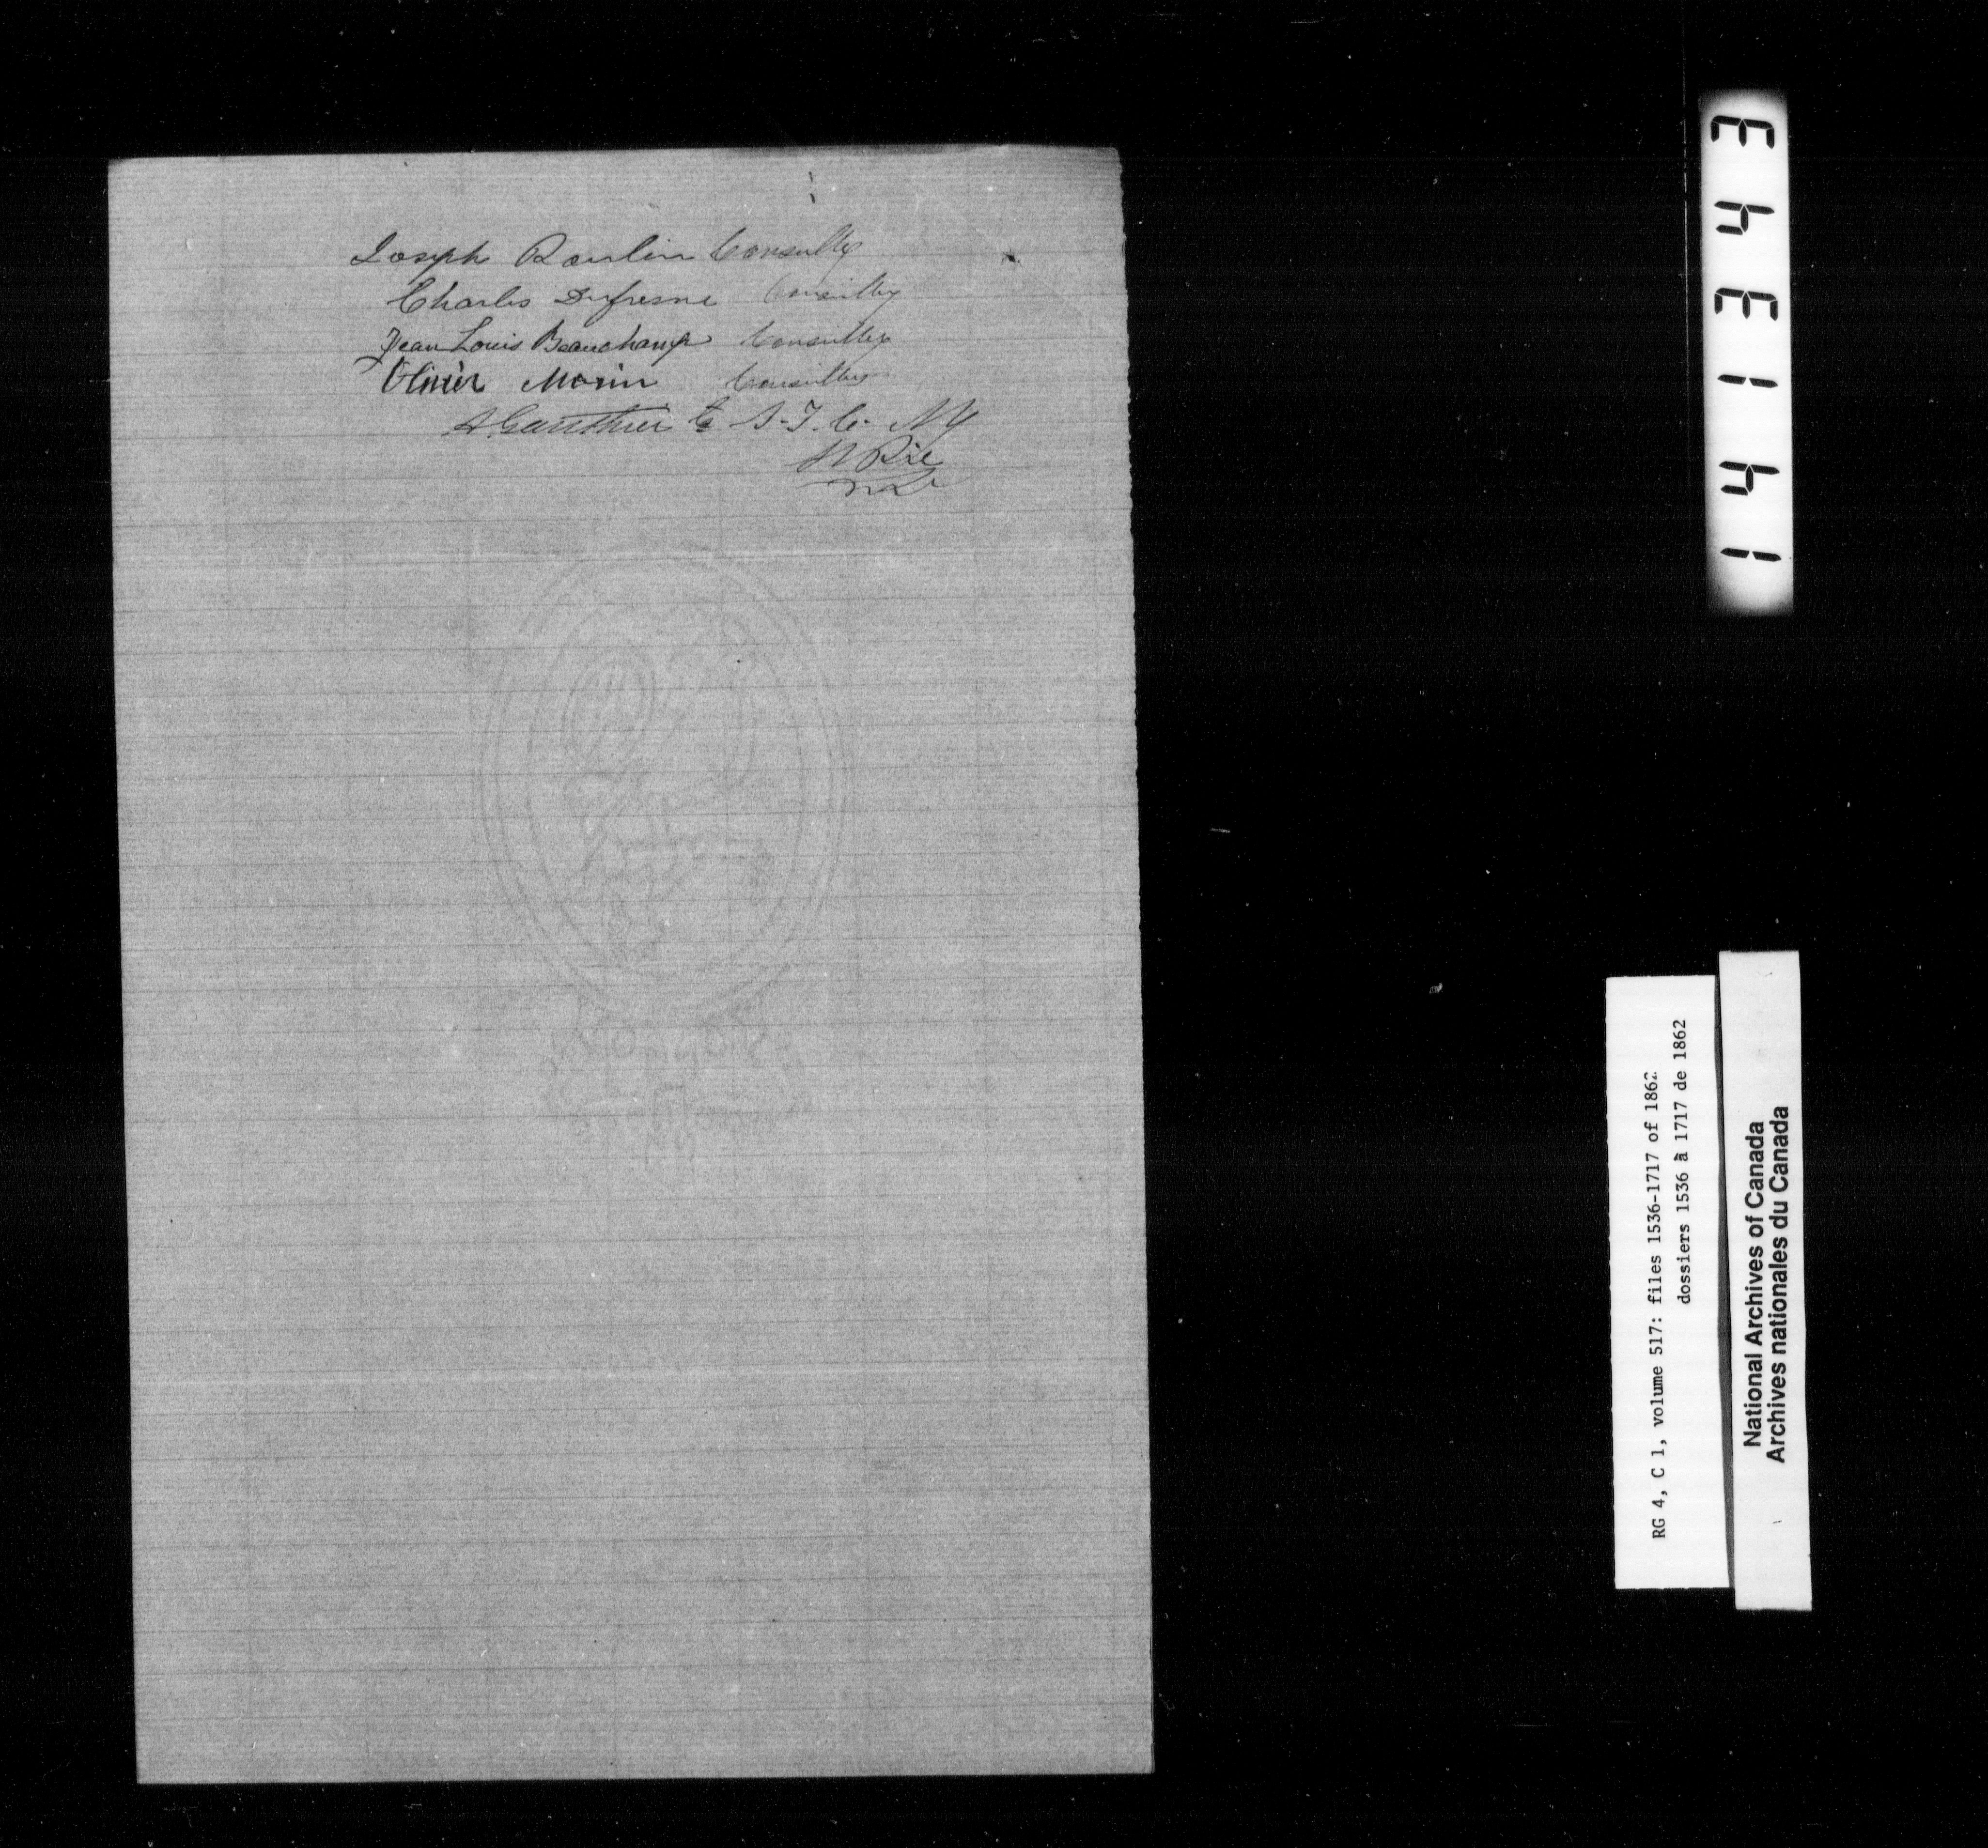 Joseph Roulin Conseiller
Charles Dufresne Conseiller
Jean Louis Beauchamp Conseiller
Olivier Morin Conseiller
A. Gauthier S. T. C. N P
RG 4, C 1, volume 517: files 1536-1717 of 1862
dossiers 1536 à 1717 de 1862
National Archives of Canada
Archives nationales du Canada